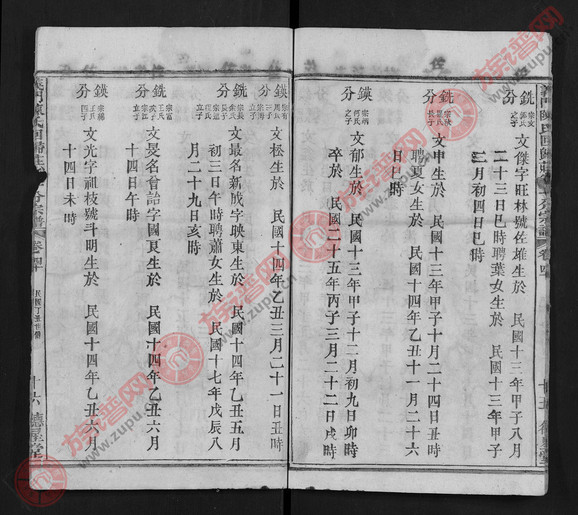 銑分
文傑字旺林號佐雄生於 民國十三年甲子八月
二十三日巳時聘葉女生於 民國十三年甲子
三月初四日巳時
銑分
文申生於 民國十三年甲子十月二十四日丑時
聘夏女生於 民國十四年乙丑十一月二十六
日巳時
文郁生於 民國十三年甲子十二月初九日卯時
卒於 民國二十五年丙子三月二十二日戌時
鍈分
文松生於 民國十四年乙丑三月二十一日丑時
銑分
文最名新成字映東生於 民國十四年乙丑五月
初三日午時聘蕭女生於 民國十七年戊辰八
月二十九日亥時
鍈分
文晸名會詒字國夏生於 民國十四年乙丑六月
十四日午時
鍈分
文光字祖枝號斗明生於 民國十四年乙丑六月
十四日未時
義門陳氏回歸莊
分宗譜
卷四十
十六
德星堂
族谱网
www.zupu.cn